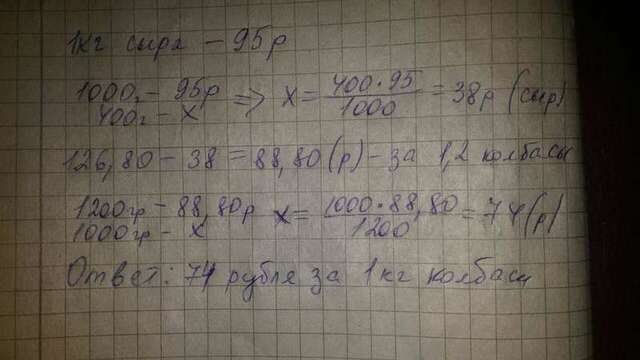 1кг сыра – 95р
1000г – 95р => X = 400·95 / 1000 = 38р (сыр)
400г – X
126,80 – 38 = 88,80 (р) – за 1,2 колбасы
1200гр – 88,80р X = 1000·88,80 / 1200 = 74(р)
1000гр – X
Ответ: 74 рубля за 1кг колбасы